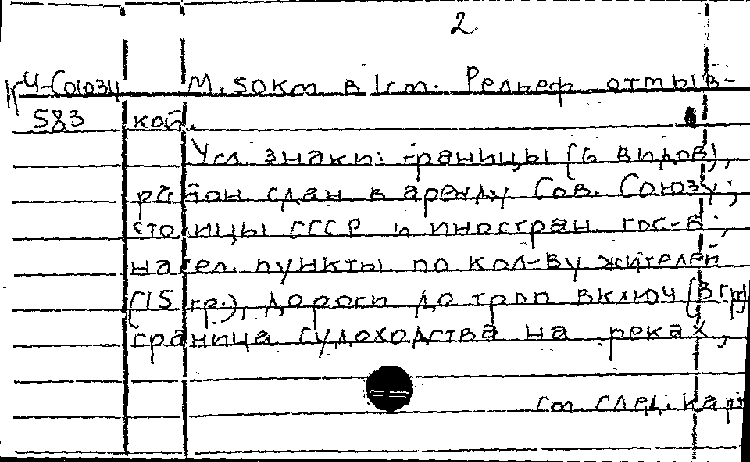 2
К Ч-Союзн М. 50 км в 1 см. Рельеф отмыв-
583 кой.
Усл. знаки: границы (6 видов),
район сдан в аренду Сов. Союзу;
столицы СССР и иностран. гос-в;
насел. пункты по кол-ву жителей
(15 гр.), дороги до троп включ (3 гр)
граница судоходства на реках,
см. след. карт